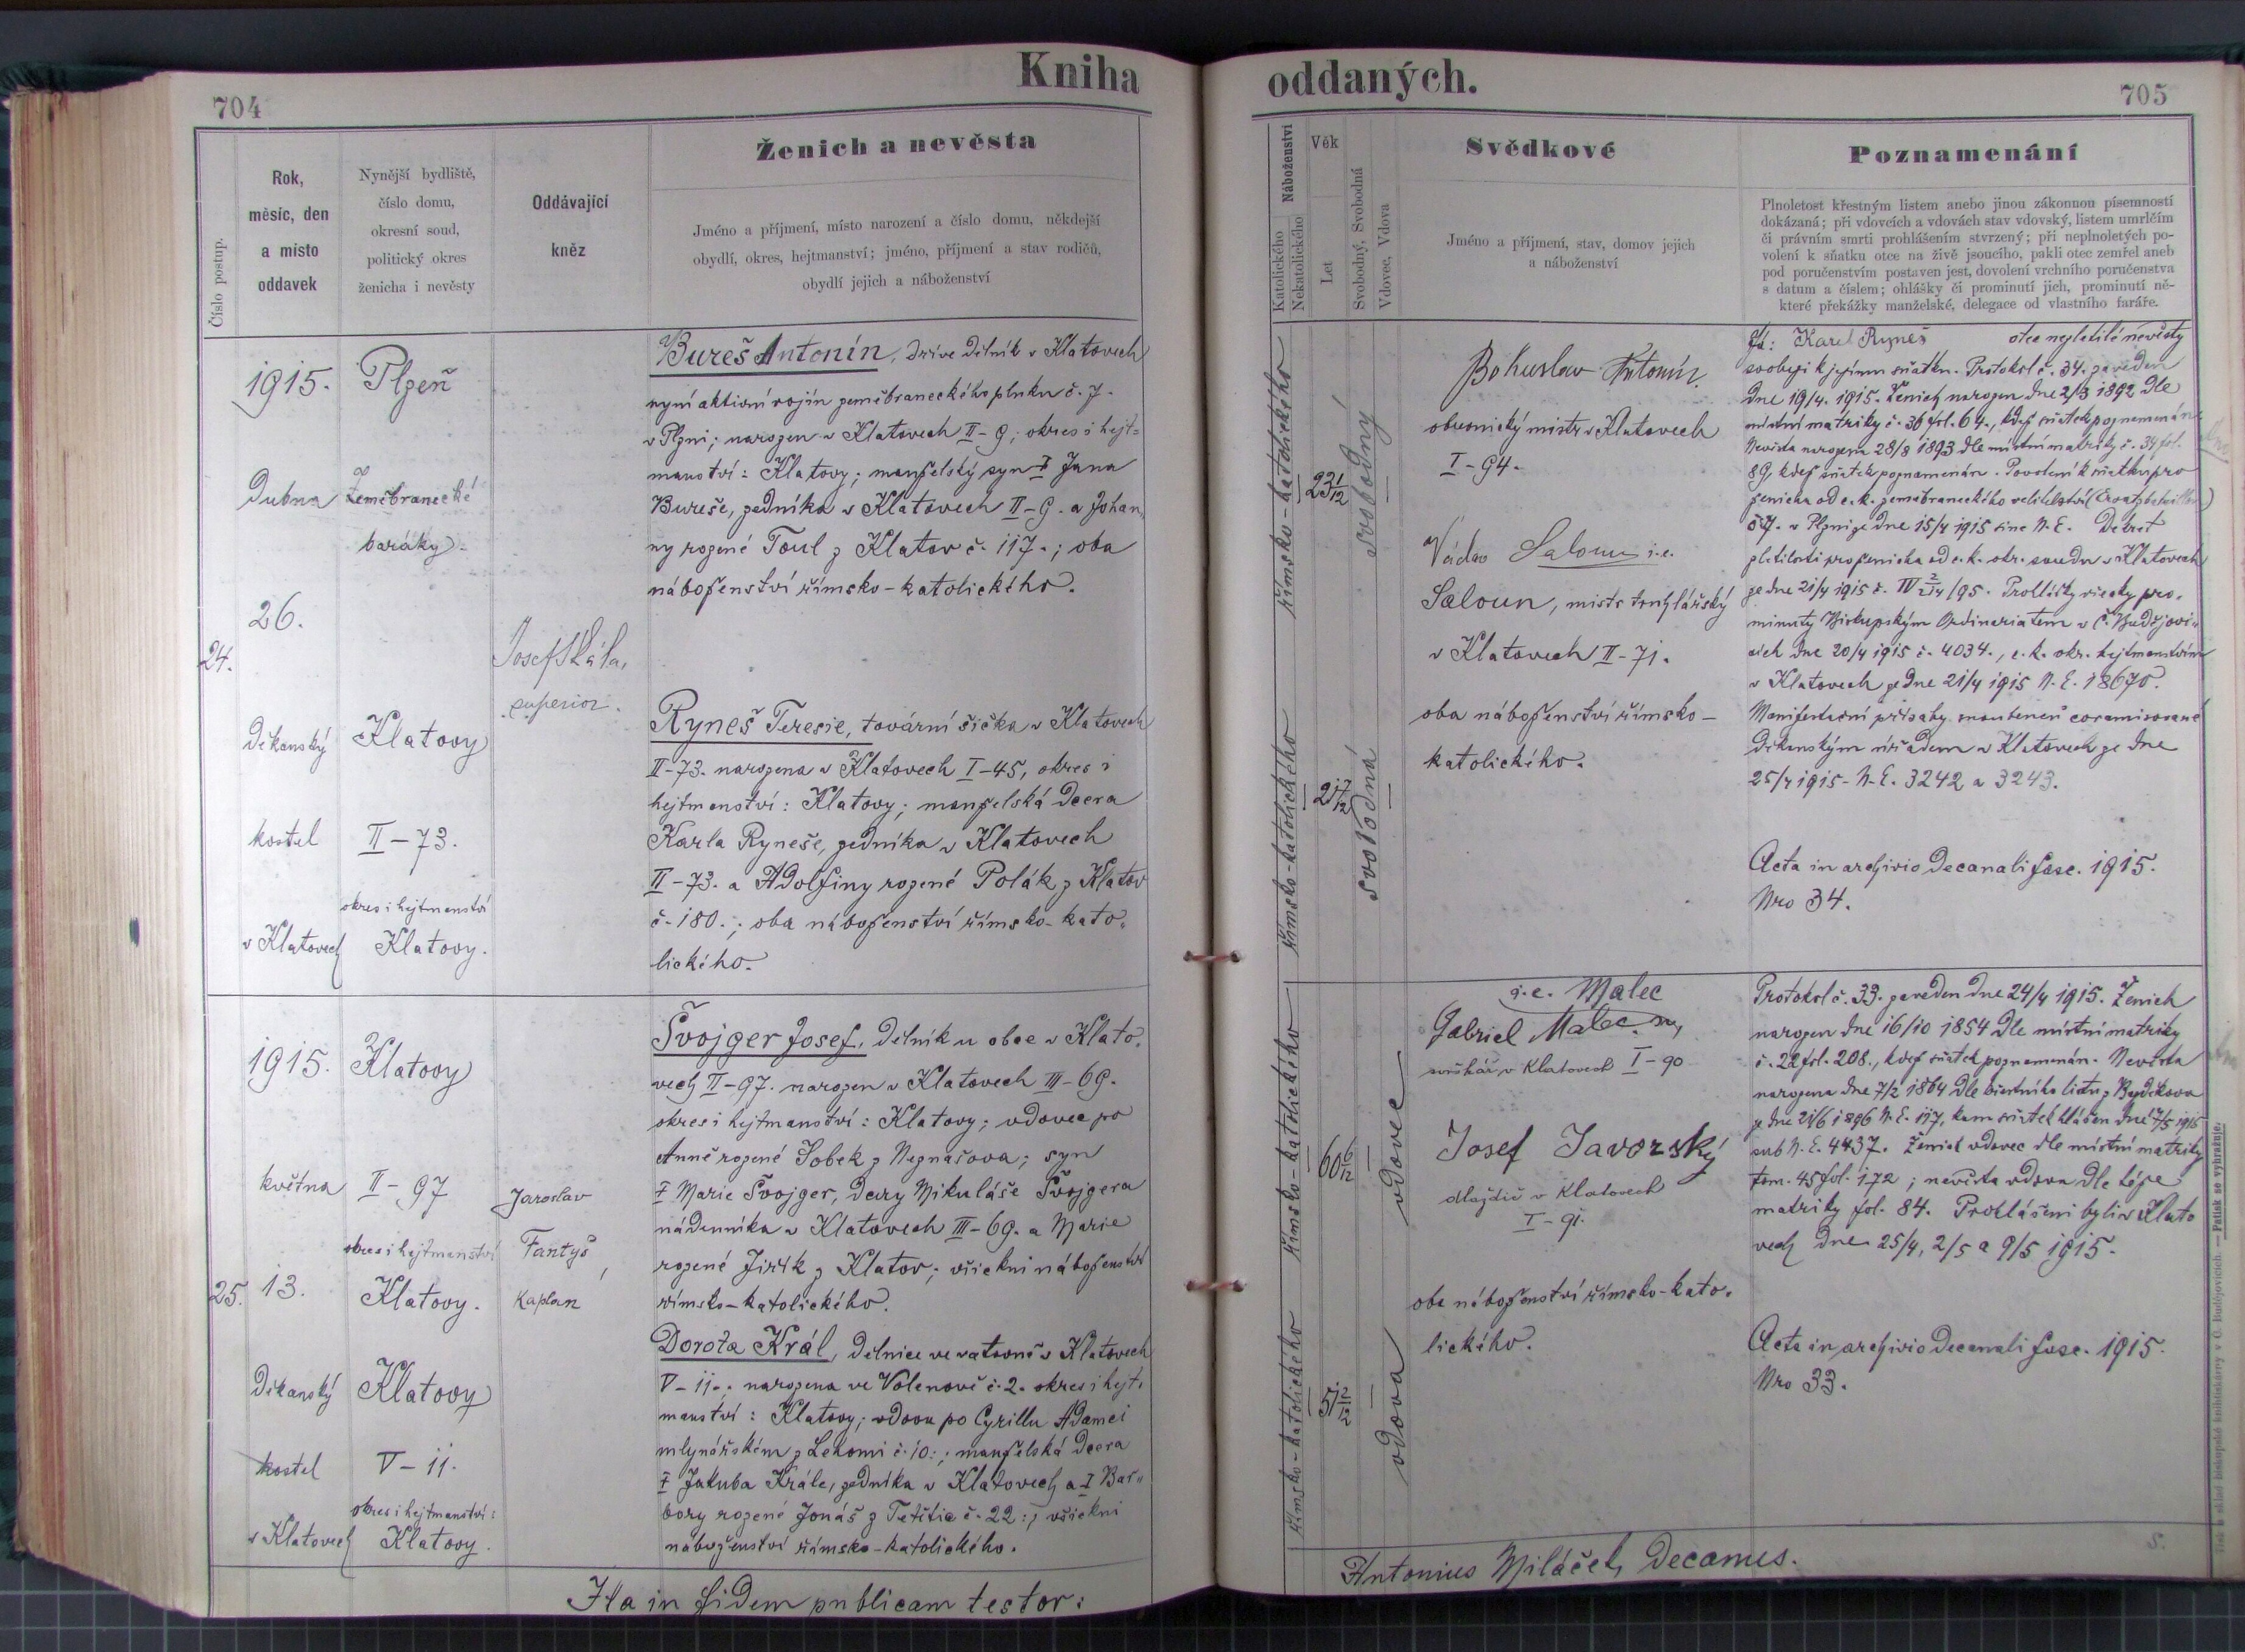 Kniha oddaných.
704
705
Číslo postup.
Rok,
měsíc, den
a místo
oddavek
Nynější bydliště,
číslo domu,
okresní soud,
politický okres
ženicha i nevěsty
Oddávající
kněz
Ženich a nevěsta
Jméno a příjmení, místo narození a číslo domu, někdejší
obydlí, okres, hejtmanství; jméno, příjmení a stav rodičů,
obydlí jejich a náboženství
Náboženství
Katolického
Nekatolického
Věk
Let
Svobodný, Svobodná
Vdovec, Vdova
Svědkové
Jméno a příjmení, stav, domov jejich
a náboženství
Poznamenání
Plnoletost křestným listem anebo jinou zákonnou písemností
dokázaná; při vdovcích a vdovách stav vdovský, listem umrlčím
či právním smrti prohlášením stvrzený; při neplnoletých po-
volení k sňatku otce na živě jsoucího, pakli otec zemřel aneb
pod poručenstvím postaven jest, dovolení vrchního poručenstva
s datum a číslem; ohlášky či prominutí jich, prominutí ně-
které překážky manželské, delegace od vlastního faráře.
24.
1915.
Dubna
26.
Děkanský
kostel
v Klatovech
Plzeň
Zeměbranecké
baráky.
Klatovy
II-73.
okres i hejtmanství
Klatovy.
Josef Skála,
superior.
Bureš Antonín, dříve dělník v Klatovech
nyní aktivní vojín zeměbraneckého pluku č. 7.
v Plzni; narozen v Klatovech II-9; okres i hejt=
manství: Klatovy; manželský syn † Jana
Bureše, zedníka v Klatovech II-9. a Johan,
ny rozené Toul z Klatov č. 117.; oba
náboženství římsko-katolického.
Ryneš Teresie, tovární šička v Klatovech
II-73. narozena v Klatovech I-45, okres i
hejtmanství: Klatovy; manželská dcera
Karla Ryneše, zedníka v Klatovech
II-73. a Adolfiny rozené Polák z Klatov
č. 180.; oba náboženství římsko-kato„
lického.
římsko-katolického
římsko-katolického
23 1/12
21 7/12
svobodný
svobodná
Bohuslav Antonín.
obuvnický mistr v Klatovech
I-94.
Václav Saloun i.e.
Saloun, mistr truhlářský
v Klatovech II-71.
oba náboženství římsko-
katolického.
Já: Karel Ryneš otec nezletilé nevěsty
svoluji k jejímu sňatku. Protokol č. 34. zaveden
dne 19/4. 1915. Ženich narozen dne 2/3 1892 dle
místní matriky č. 36 fol. 64., kdež sňatek poznamenán
Nevěsta narozena 28/8 1893 dle místní matriky č. 34 fol.
89, kdež sňatek poznamenán. Povolení k sňatku pro
ženicha od c. k. zeměbraneckého velitelství
č 7. v Plzni ze dne 15/4 1915 sine N. E. Dekret
zletilosti pro ženicha od c. k. okr. soudu v Klatovech
ze dne 21/4 1915 č. Prohlášky všecky pro,
minuty Biskupským Ordinariatem v Č. Budějovi„
cích dne 20/4 1915 č. 4034., c. k. okr. hejtmanstvím
v Klatovech ze dne 21/4 1915 N. E. 18670.
Manifestační přísahy snoubenců
Děkanským úřadem v Klatovech ze dne
25/4 1915 - N. E. 3242 a 3243.
Acta in archivio Decanali fasc. 1915.
Nro 34.
25.
1915.
května
13.
Děkanský
kostel
v Klatovech
Klatovy
II-97
okres i hejtmanství
Klatovy.
Klatovy
V-11.
okres i hejtmanství:
Klatovy.
Jaroslav
Fantyš,
kaplan
Švojger Josef, dělník u obce v Klato,
vech II-97. narozen v Klatovech III-69.
okres i hejtmanství: Klatovy; vdovec po
Anně rozené Sobek z Neznašova; syn
† Marie Švojger, dcery Mikuláše Švojgera
nádenníka v Klatovech III-69. a Marie
rozené Jiřík z Klatov; všickni náboženství
římsko-katolického.
Dorota Král, dělnice ve vatovně v Klatovech
V-11.; narozena ve Volenově č. 2. okres i hejt.
manství: Klatovy; vdova po Cyrillu Adamci
mlynářském z č. 10.; manželská dcera
† Jakuba Krále, zedníka v Klatovech a † Bar„
bory rozené Jonáš z Tetětic č. 22.; všickni
náboženství římsko-katolického.
římsko-katolického
římsko-katolického
60 6/12
51 2/12
vdovec
vdova
i.e. Malec
Gabriel Malec
v Klatovech I-90
Josef Javorský
dlaždič v Klatovech
I-91.
oba náboženství římsko-kato.
lického.
Protokol č. 33. zaveden dne 24/4 1915. Ženich
narozen dne 16/10 1854 dle místní matriky
č. 22 fol. 208., kdež sňatek poznamenán. Nevěsta
narozena dne 7/2 1864 dle křestního listu z
ze dne 21/6 1896 N. E. 117, kam sňatek hlášen dne 7/5 1915
sub N. E. 4437. Ženich vdovec dle místní matriky
tom. 45 fol. 172; nevěsta vdova dle téže
matriky fol. 84. Prohlášeni byli v Klato
vech dne 25/4, 2/5 a 9/5 1915.
Acta in archivio Decanali fasc. 1915.
Nro 33.
Ita in fidem publicam testor:
Antonius Miláček, Decanus.
Tisk a sklad biskupské knihtiskárny v Č. Budějovicích. — Patisk se vyhražuje.